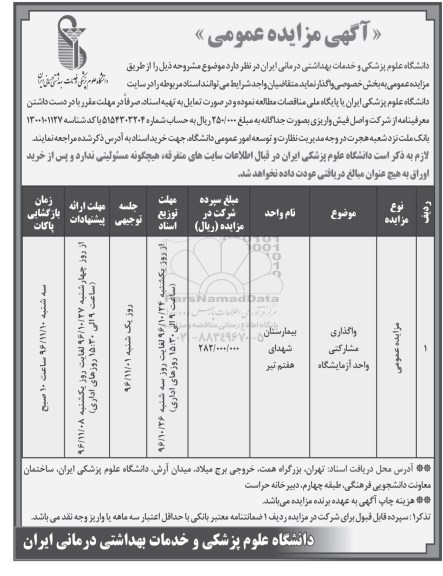 «آگهی مزایده عمومی»
دانشگاه علوم پزشکی و خدمات بهداشتی درمانی ایران
دانشگاه علوم پزشکی و خدمات بهداشتی درمانی ایران در نظر دارد موضوع مشروحه ذیل را از طریق
مزایده عمومی به بخش خصوصی واگذار نماید. متقاضیان واجد شرایط می توانند اسناد مربوطه را در سایت
دانشگاه علوم پزشکی ایران یا پایگاه ملی مناقصات مطالعه نموده و در صورت تمایل به تهیه اسناد، صرفاً در مهلت مقرر با در دست داشتن
معرفینامه از شرکت و اصل فیش واریزی بصورت جداگانه به مبلغ ۲۵۰/۰۰۰ ریال به حساب شماره ۵۱۵۴۳۰۳۲۰۴ با کد شناسه ۱۳۰۰۱۰۱۱۳۷
بانک ملت نزد شعبه هجرت در وجه مدیریت نظارت و توسعه امور عمومی دانشگاه، جهت خرید اسناد به آدرس ذکر شده مراجعه نمایند.
لازم به ذکر است دانشگاه علوم پزشکی ایران در قبال اطلاعات سایت های متفرقه، هیچگونه مسئولیتی ندارد و پس از خرید
اوراق به هیچ عنوان مبالغ دریافتی عودت داده نخواهد شد.
ردیف
نوع مزایده
موضوع
نام واحد
مبلغ سپرده شرکت در مزایده (ریال)
مهلت توزیع اسناد
جلسه توجیهی
مهلت ارائه پیشنهادات
زمان بازگشایی پاکات
۱
مزایده عمومی
واگذاری مشارکتی واحد آزمایشگاه
بیمارستان شهدای هفتم تیر
۲۸۲/۰۰۰/۰۰۰
از روز یکشنبه ۹۶/۱۰/۲۴ لغایت روز سه شنبه ۹۶/۱۰/۲۶
(ساعت ۹ الی ۱۵:۳۰ روزهای اداری)
روز یک شنبه ۹۶/۱۱/۰۱
از روز چهارشنبه ۹۶/۱۰/۲۷ لغایت روز یکشنبه ۹۶/۱۱/۰۸
(ساعت ۹ الی ۱۵:۳۰ روزهای اداری)
سه شنبه ۹۶/۱۱/۱۰ ساعت ۱۰ صبح
ParsNamadData
۰۲۱-۸۸۳۴۹۶۷۰-۵
** آدرس محل دریافت اسناد: تهران، بزرگراه همت، خروجی برج میلاد، میدان آرش، دانشگاه علوم پزشکی ایران، ساختمان
معاونت دانشجویی فرهنگی، طبقه چهارم، دبیرخانه حراست
** هزینه چاپ آگهی به عهده برنده مزایده می‌باشد.
تذکر۱: سپرده قابل قبول برای شرکت در مزایده ردیف ۱ ضمانتنامه معتبر بانکی با حداقل اعتبار سه ماهه یا واریز وجه نقد می باشد.
دانشگاه علوم پزشکی و خدمات بهداشتی درمانی ایران